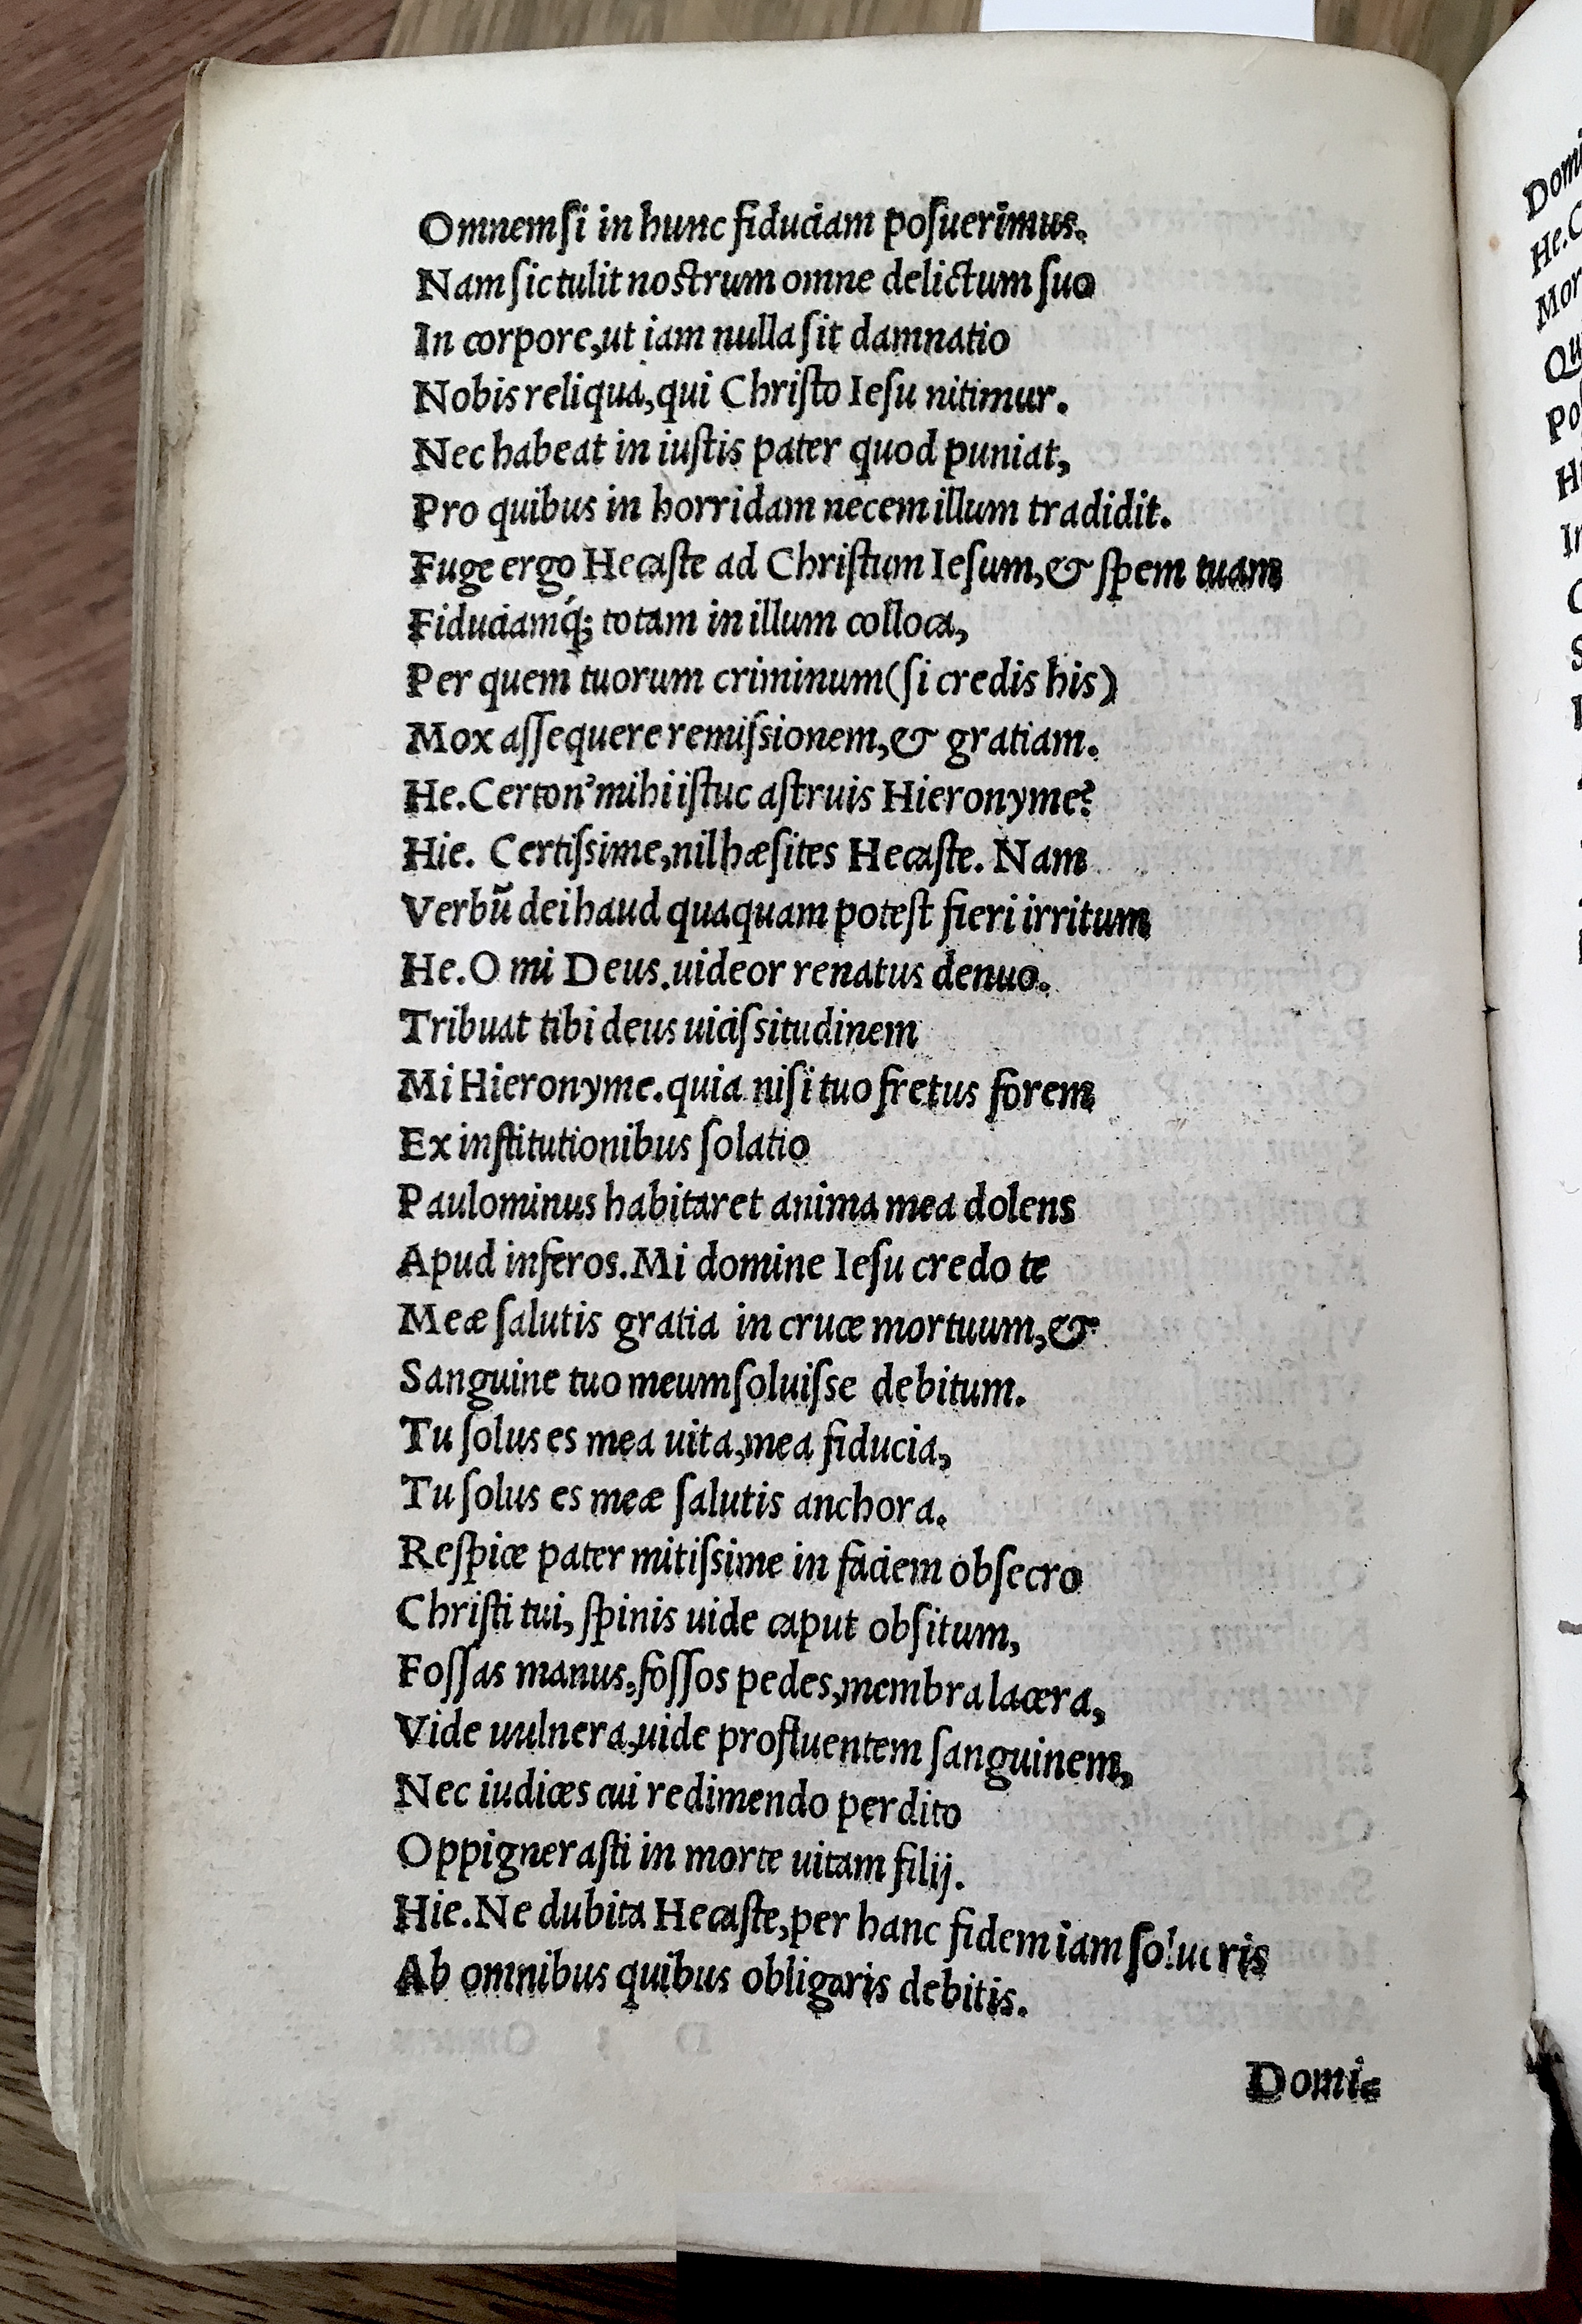 Omnem ſi in hunc fiduciam poſuerimus.
Nam ſic tulit noſtrum omne delictum ſuo
In corpore, ut iam nulla ſit damnatio
Nobis reliqua, qui Chriſto Ieſu nitimur.
Nec habeat in iuſtis pater quod puniat,
Pro quibus in horridam necem illum tradidit.
Fuge ergo Hecaſte ad Chriſtum Ieſum, & ſpem tuam
Fiduciamq́; totam in illum colloca,
Per quem tuorum criminum (ſi credis his)
Mox aſſequere remiſsionem, & gratiam.
He. Certon' mihi iſtuc aſtruis Hieronyme?
Hie. Certiſsime, nil hæſites Hecaſte. Nam
Verbū dei haud quaquam poteſt fieri irritum
He. O mi Deus. uideor renatus denuo.
Tribuat tibi deus uiciſsitudinem
Mi Hieronyme. quia niſi tuo fretus forem
Ex inſtitutionibus ſolatio
Paulominus habitaret anima mea dolens
Apud inferos. Mi domine Ieſu credo te
Meæ ſalutis gratia in cruce mortuum, &
Sanguine tuo meum ſoluiſse debitum.
Tu ſolus es mea uita, mea fiducia,
Tu ſolus es meæ ſalutis anchora.
Reſpice pater mitiſsime in faciem obſecro
Chriſti tui, ſpinis uide caput obſitum,
Foſſas manus, foſſos pedes, membra lacera,
Vide uulnera, uide profluentem ſanguinem,
Nec iudices cui redimendo perdito
Oppigneraſti in morte uitam filij.
Hie. Ne dubita Hecaſte, per hanc fidem iam ſolueris
Ab omnibus quibus obligaris debitis.
Domi=
Domi
He. C
Mor
Qu
Poſ